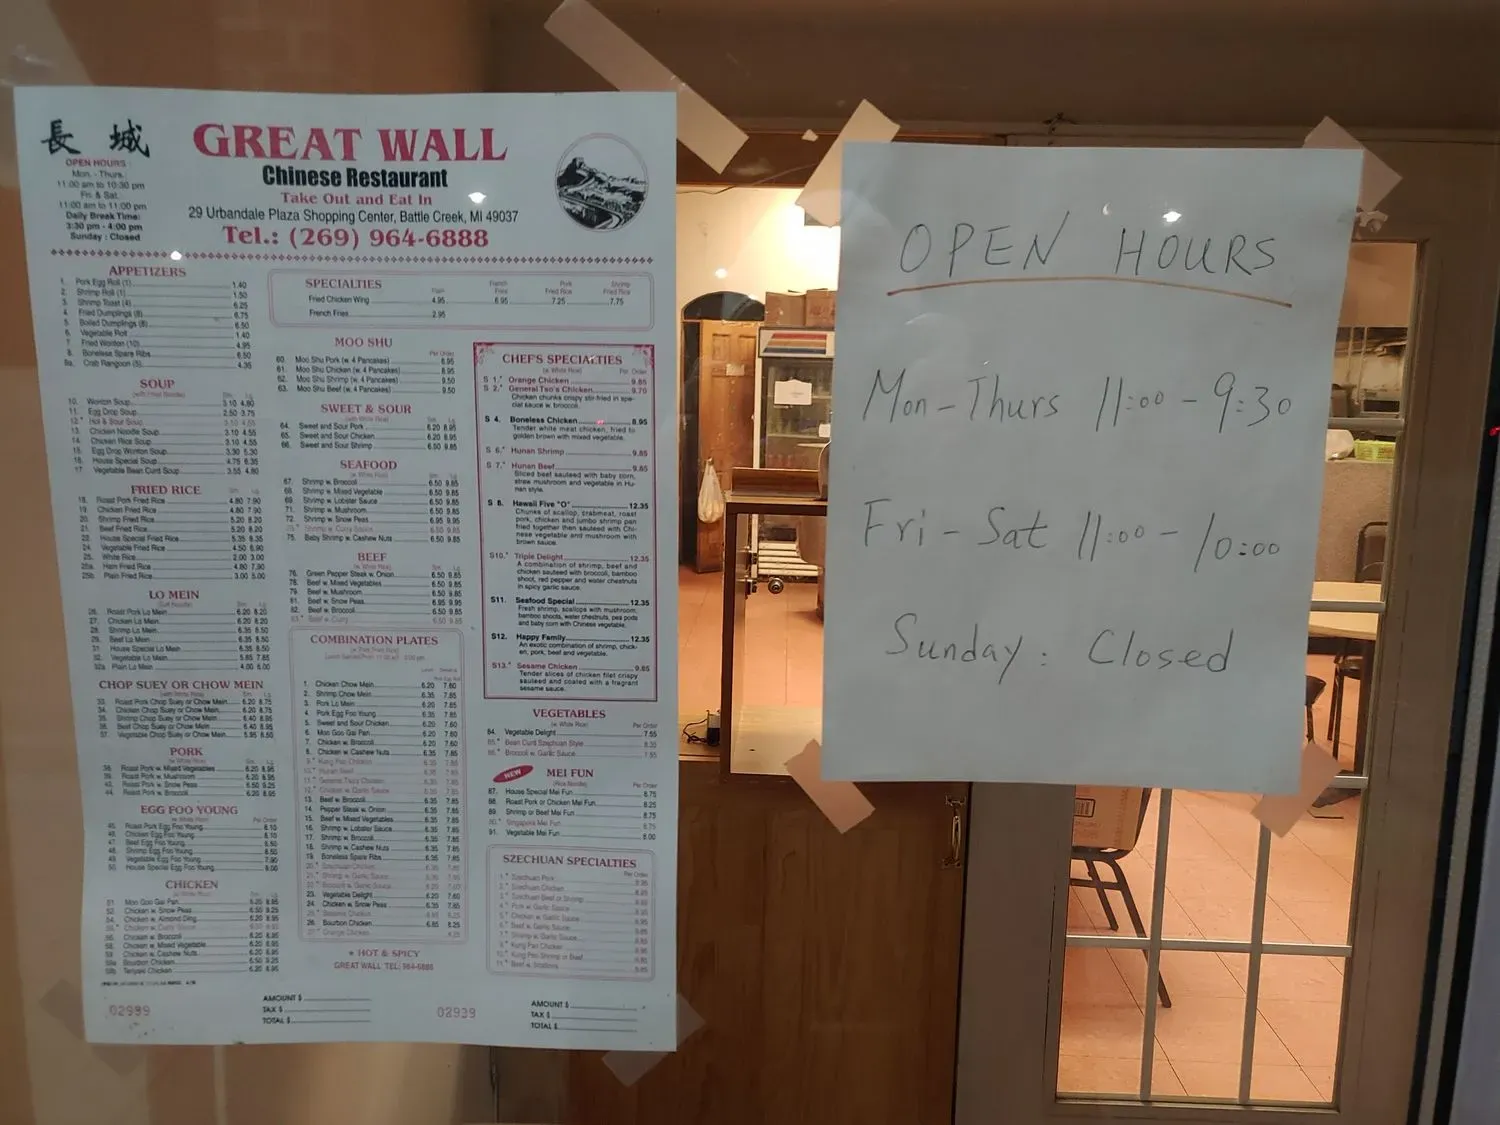 長 城
OPEN HOURS:
Mon. - Thurs.
11:00 am to 10:30 pm
Fri. & Sat.
11:00 am to 11:00 pm
Daily Break Time:
3:30 pm - 4:00 pm
Sunday : Closed
GREAT WALL
Chinese Restaurant
Take Out and Eat In
29 Urbandale Plaza Shopping Center, Battle Creek, MI 49037
Tel.: (269) 964-6888
APPETIZERS
1. Pork Egg Roll (1) 1.40
2. Shrimp Roll (1) 1.50
3. Shrimp Toast (4) 6.25
4. Fried Dumplings (8) 6.75
5. Boiled Dumplings (8) 6.50
6. Vegetable Roll 1.40
7. Fried Wonton (10) 4.95
8. Boneless Spare Ribs 6.50
8a. Crab Rangoon (5) 4.35
SOUP
10. Wonton Soup 3.10 4.80
11. Egg Drop Soup 2.50 3.75
12.* Hot & Sour Soup
13. Chicken Noodle Soup 3.10 4.55
14. Chicken Rice Soup 3.10 4.55
15. Egg Drop Wonton Soup 3.30 5.30
16. House Special Soup 4.75 6.35
17. Vegetable Bean Curd Soup 3.55 4.80
FRIED RICE
Sm. Lg.
18. Roast Pork Fried Rice 4.80 7.90
19. Chicken Fried Rice 4.80 7.90
20. Shrimp Fried Rice 5.20 8.20
21. Beef Fried Rice 5.20 8.20
22. House Special Fried Rice 5.35 8.35
24. Vegetable Fried Rice 4.50 6.90
25. White Rice 2.00 3.00
25a. Ham Fried Rice 4.80 7.90
25b. Plain Fried Rice 3.00 5.00
LO MEIN
26. Roast Pork Lo Mein 6.20 8.20
27. Chicken Lo Mein 6.20 8.20
28. Shrimp Lo Mein 6.35 8.50
29. Beef Lo Mein 6.35 8.50
31. House Special Lo Mein 6.35 8.50
32. Vegetable Lo Mein 5.65 7.85
32a. Plain Lo Mein 4.00 6.00
CHOP SUEY OR CHOW MEIN
33. Roast Pork Chop Suey or Chow Mein 6.20 8.75
34. Chicken Chop Suey or Chow Mein 6.20 8.75
35. Shrimp Chop Suey or Chow Mein 6.40 8.95
36. Beef Chop Suey or Chow Mein 6.40 8.95
37. Vegetable Chop Suey or Chow Mein 5.95 8.50
PORK
38. Roast Pork w. Mixed Vegetables 6.20 8.95
39. Roast Pork w. Mushroom 6.20 8.95
43. Roast Pork w. Snow Peas 6.50 9.25
44. Roast Pork w. Broccoli 6.20 8.95
EGG FOO YOUNG
Per Order
45. Roast Pork Egg Foo Young 8.10
46. Chicken Egg Foo Young 8.10
47. Beef Egg Foo Young 8.50
48. Shrimp Egg Foo Young 8.50
49. Vegetable Egg Foo Young 7.90
50. House Special Egg Foo Young 9.00
CHICKEN
51. Moo Goo Gai Pan 6.20 8.95
52. Chicken w. Snow Peas 6.50 9.25
54. Chicken w. Almond Ding 6.20 8.95
55.* Chicken w. Curry Sauce
56. Chicken w. Broccoli 6.20 8.95
58. Chicken w. Mixed Vegetable 6.20 8.95
59. Chicken w. Cashew Nuts 6.20 8.95
59a. Bourbon Chicken 6.50 9.25
59b. Teriyaki Chicken 6.20 8.95
SPECIALTIES
Plain French Fries Pork Fried Rice Shrimp Fried Rice
Fried Chicken Wing 4.95 6.95 7.25 7.75
French Fries 2.95
MOO SHU
Per Order
60. Moo Shu Pork (w. 4 Pancakes) 8.95
61. Moo Shu Chicken (w. 4 Pancakes) 8.95
62. Moo Shu Shrimp (w. 4 Pancakes) 9.50
63. Moo Shu Beef (w. 4 Pancakes) 9.50
SWEET & SOUR
64. Sweet and Sour Pork 6.20 8.95
65. Sweet and Sour Chicken 6.20 8.95
66. Sweet and Sour Shrimp 6.50 9.85
SEAFOOD
67. Shrimp w. Broccoli 6.50 9.85
68. Shrimp w. Mixed Vegetable 6.50 9.85
69. Shrimp w. Lobster Sauce 6.50 9.85
71. Shrimp w. Mushroom 6.50 9.85
72. Shrimp w. Snow Peas 6.95 9.95
Shrimp w. Curry Sauce
75. Baby Shrimp w. Cashew Nuts 6.50 9.85
BEEF
76. Green Pepper Steak w. Onion 6.50 9.85
78. Beef w. Mixed Vegetables 6.50 9.85
79. Beef w. Mushroom 6.50 9.85
81. Beef w. Snow Peas 6.95 9.95
82. Beef w. Broccoli 6.50 9.85
83.* Beef w. Curry 6.50 9.85
COMBINATION PLATES
1. Chicken Chow Mein 6.20 7.60
2. Shrimp Chow Mein 6.35 7.85
3. Pork Lo Mein 6.20 7.85
4. Pork Egg Foo Young 6.35 7.85
5. Sweet and Sour Chicken 6.20 7.60
6. Moo Goo Gai Pan 6.20 7.60
7. Chicken w. Broccoli 6.20 7.60
8. Chicken w. Cashew Nuts 6.35 7.85
9.* Kung Pao Chicken
10.* Hunan Beef
11.* General Tso's Chicken
12.* Chicken w. Garlic Sauce
13. Beef w. Broccoli 6.35 7.85
14. Pepper Steak w. Onion 6.35 7.85
15. Beef w. Mixed Vegetables 6.35 7.85
16. Shrimp w. Lobster Sauce 6.35 7.85
17. Shrimp w. Broccoli 6.35 7.85
18. Shrimp w. Cashew Nuts 6.35 7.85
19. Boneless Spare Ribs 6.35 7.85
20.* Szechuan Chicken
21.* Shrimp w. Garlic Sauce
22.* Broccoli w. Garlic Sauce
23. Vegetable Delight 6.20 7.60
24. Chicken w. Snow Peas 6.35 7.85
25.* Sesame Chicken
26. Bourbon Chicken 6.85 8.25
27.* Orange Chicken
* HOT & SPICY
GREAT WALL TEL: 964-6888
CHEF'S SPECIALTIES
(w. White Rice) Per Order
S 1.* Orange Chicken 9.85
S 2.* General Tso's Chicken 9.70
Chicken chunks crispy stir-fried in special sauce w. broccoli.
S 4. Boneless Chicken 8.95
Tender white meat chicken, fried to golden brown with mixed vegetable.
S 6.* Hunan Shrimp 9.85
S 7.* Hunan Beef 9.85
Sliced beef sauteed with baby corn, straw mushroom and vegetable in Hunan style.
S 8. Hawaii Five "O" 12.35
Chunks of scallop, crabmeat, roast pork, chicken and jumbo shrimp pan fried together then sauteed with Chinese vegetable and mushroom with brown sauce.
S10.* Triple Delight 12.35
A combination of shrimp, beef and chicken sauteed with broccoli, bamboo shoot, red pepper and water chestnuts in spicy garlic sauce.
S11. Seafood Special 12.35
Fresh shrimp, scallops with mushroom, bamboo shoots, water chestnuts, pea pods and baby corn with Chinese vegetable.
S12. Happy Family 12.35
An exotic combination of shrimp, chicken, pork, beef and vegetable.
S13.* Sesame Chicken 9.85
Tender slices of chicken filet crispy sauteed and coated with a fragrant sesame sauce.
VEGETABLES
(w. White Rice) Per Order
84. Vegetable Delight 7.55
85.* Bean Curd Szechuan Style 8.35
86.* Broccoli w. Garlic Sauce 7.55
NEW MEI FUN
(Rice Noodle) Per Order
87. House Special Mei Fun 8.75
88. Roast Pork or Chicken Mei Fun 8.25
89. Shrimp or Beef Mei Fun 8.75
90.* Singapore Mei Fun 8.75
91. Vegetable Mei Fun 8.00
SZECHUAN SPECIALTIES
Per Order
1.* Szechuan Pork
2.* Szechuan Chicken
3.* Szechuan Beef or Shrimp
4.* Pork w. Garlic Sauce
5.* Chicken w. Garlic Sauce
6.* Beef w. Garlic Sauce
7.* Shrimp w. Garlic Sauce
9.* Kung Pao Chicken
10.* Kung Pao Shrimp or Beef
02999
AMOUNT $
TAX $
TOTAL $
02939
AMOUNT $
TAX $
TOTAL $
OPEN HOURS
Mon-Thurs 11:00 - 9:30
Fri-Sat 11:00 - 10:00
Sunday: Closed